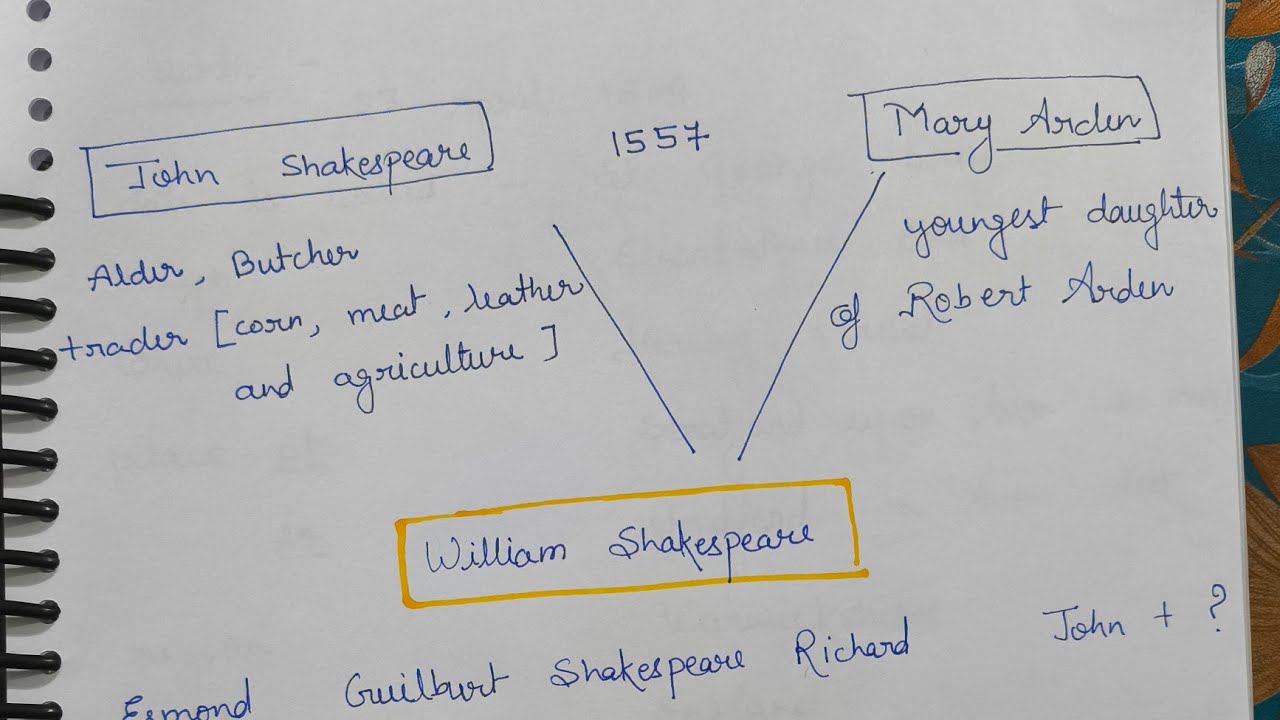 John Shakespeare
1557
Mary Arden
Alder, Butcher
trader [corn, meat, leather
and agriculture]
youngest daughter
of Robert Arden
William Shakespeare
John + ?
Esmond Guilburt Shakespeare Richard